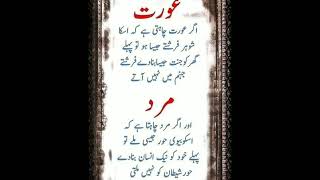 عورت
اگر عورت چاہتی ہے کہ اسکا
شوہر فرشتے جیسا ہو تو پہلے
گھر کو جنت جیسا بنا دے فرشتے
جہنم میں نہیں آتے
مرد
اور اگر مرد چاہتا ہے کہ
اسکو بیوی حور جیسی ملے تو
پہلے خود کو نیک انسان بنا دے
حور شیطان کو نہیں ملتی